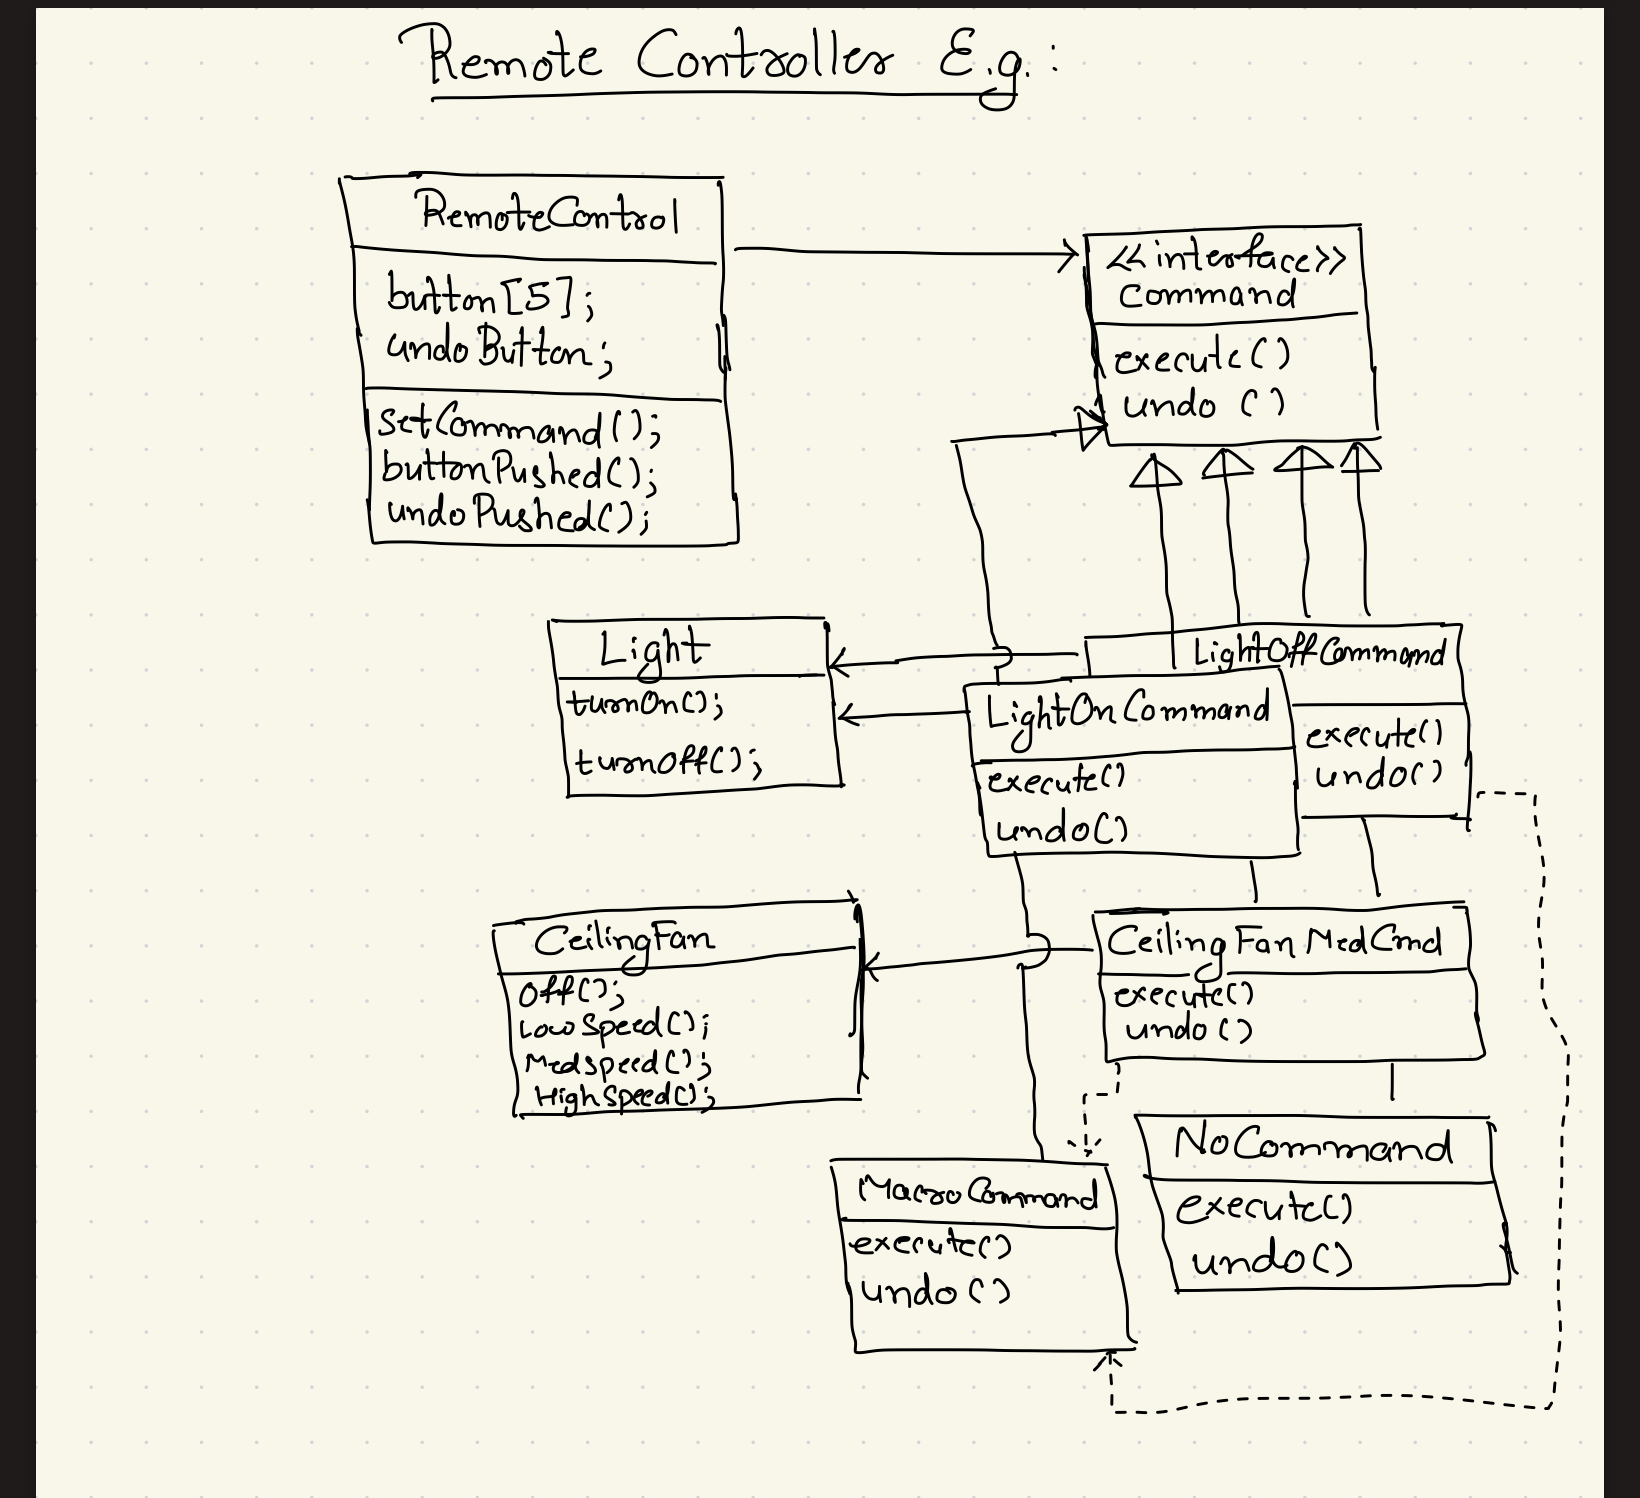 Remote Controller E.g. :
RemoteControl
button[5];
undoButton;
setCommand();
buttonPushed();
undoPushed();
<<interface>>
Command
execute()
undo ()
Light
turnOn();
turnOff();
LightOffCommand
execute()
undo()
LightOnCommand
execute()
undo()
CeilingFan
Off();
LowSpeed();
MedSpeed();
HighSpeed();
CeilingFanMedCmd
execute()
undo ()
NoCommand
execute()
undo()
MacroCommand
execute()
undo ()